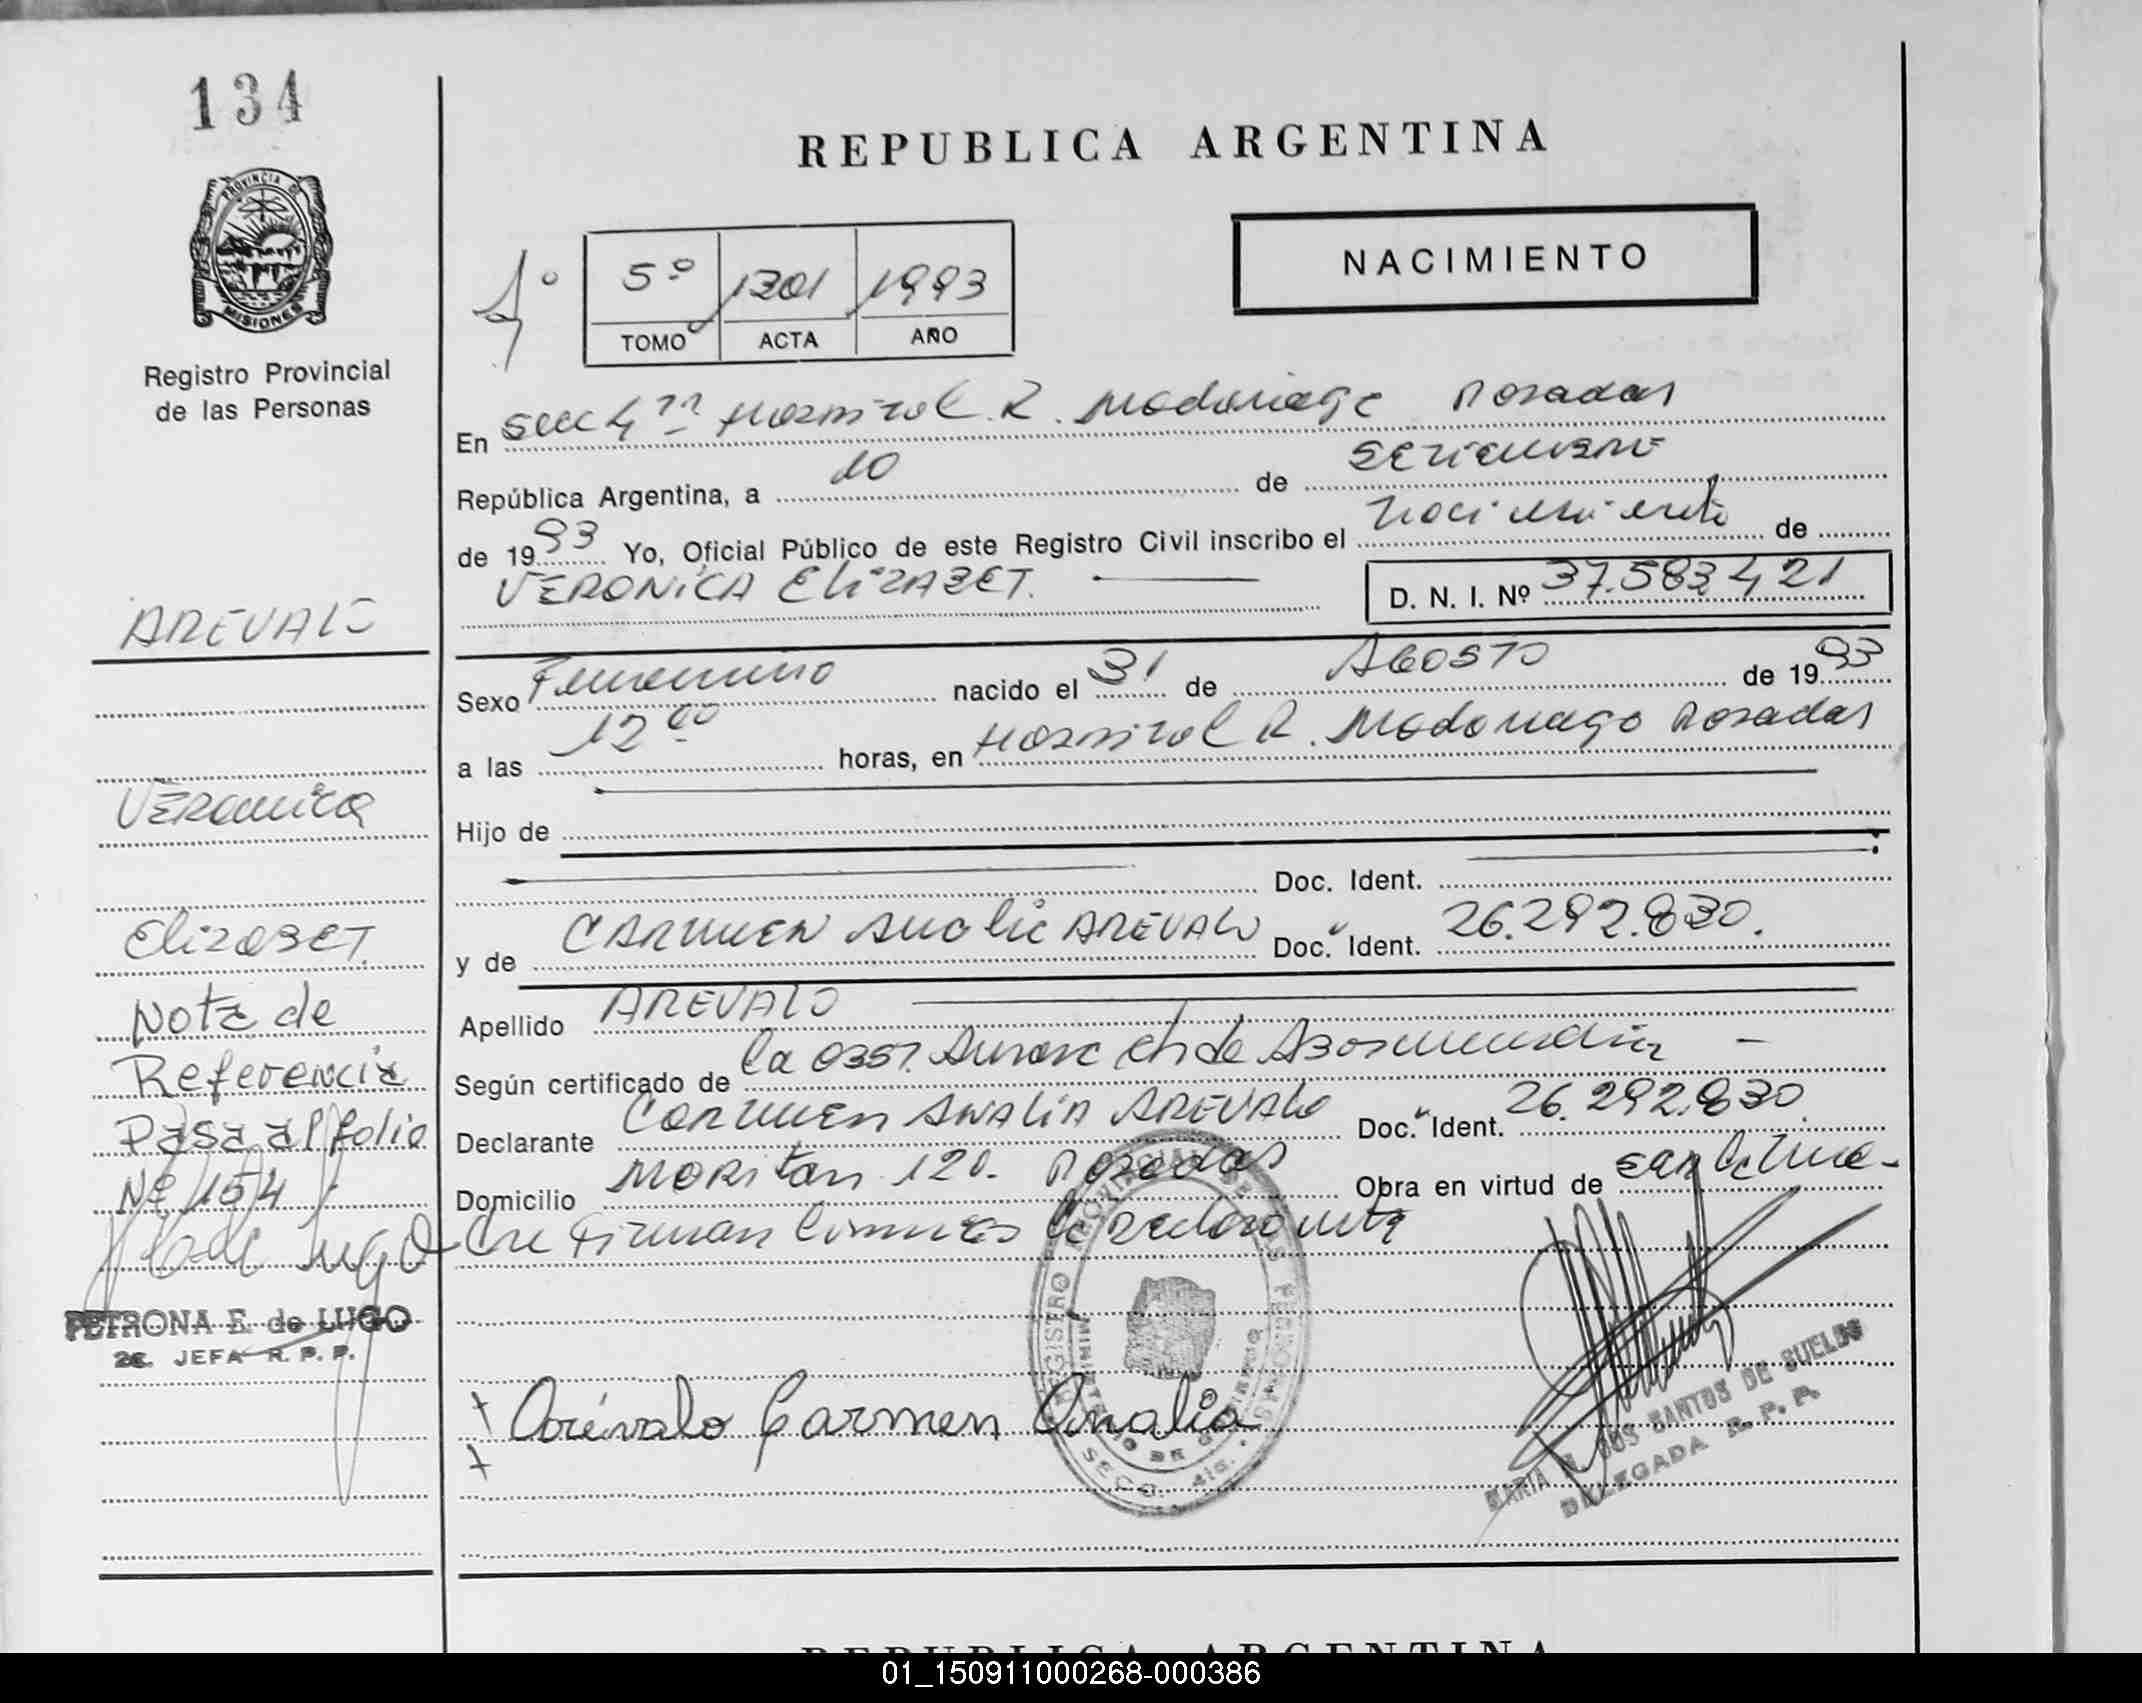 134
PROVINCIA DE
MISIONES
Registro Provincial
de las Personas
REPUBLICA ARGENTINA
NACIMIENTO
1º
5º 1301 1993
TOMO ACTA AÑO
En Secc 4ª Hospital R. Madariaga Posadas
República Argentina, a 10 de SETIEMBRE
de 1993 Yo, Oficial Público de este Registro Civil inscribo el Nacimiento de
VERONICA ELIZABET. D. N. I. Nº 37.583421
Sexo Femenino nacido el 31 de AGOSTO de 1993
a las 12 00 horas, en Hospital R. Madariaga Posadas
Hijo de
Doc. Ident.
y de CARMEN Analia AREVALO Doc. Ident. 26.292.830.
Apellido AREVALO
Según certificado de la Obst.
Declarante CARMEN ANALIA AREVALO Doc. Ident. 26.292.830.
Domicilio 120. Posadas Obra en virtud de
Firman la declarante
AREVALO
VERONICA
ELIZABET
Nota de
Referencia
Pasa al folio
Nº 154
de Lugo
PETRONA E. de LUGO
2ª JEFA R. P. P.
Arévalo Carmen Analia
REGISTRO PROVINCIAL DE LAS PERSONAS
MINISTERIO DE GOBIERNO
SECC. 4ta.
MARIA DOS SANTOS DE BUELOS
DELEGADA R. P. P.
REPUBLICA ARGENTINA
01_150911000268-000386